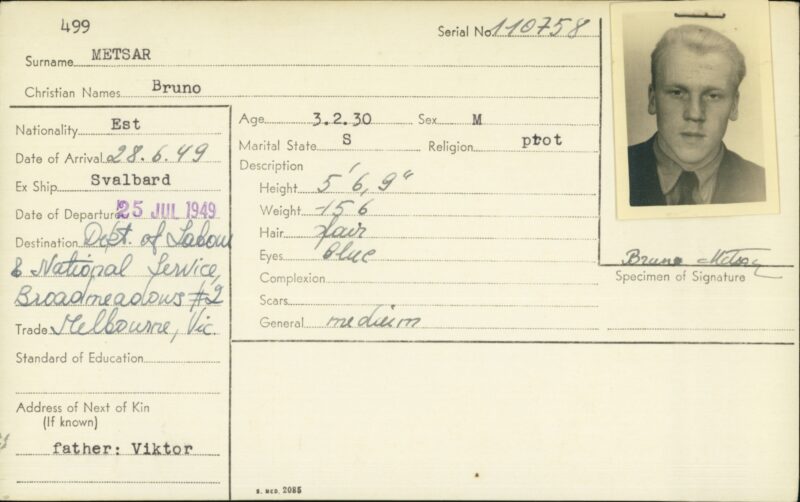 499
Serial No. 110758
Surname METSAR
Christian Names Bruno
Nationality Est
Date of Arrival 28.6.49
Ex Ship Svalbard
Date of Departure 25 JUL 1949
Destination Dept. of Labour
& National Service,
Broadmeadows #2
Trade Melbourne, Vic.
Standard of Education
Address of Next of Kin
(If known)
father: Viktor
Age 3.2.30 Sex M
Marital State S Religion prot
Description
Height 5' 6, 9"
Weight 156
Hair fair
Eyes blue
Complexion
Scars
General medium
Bruno Metsar
Specimen of Signature
S. MCD. 2085